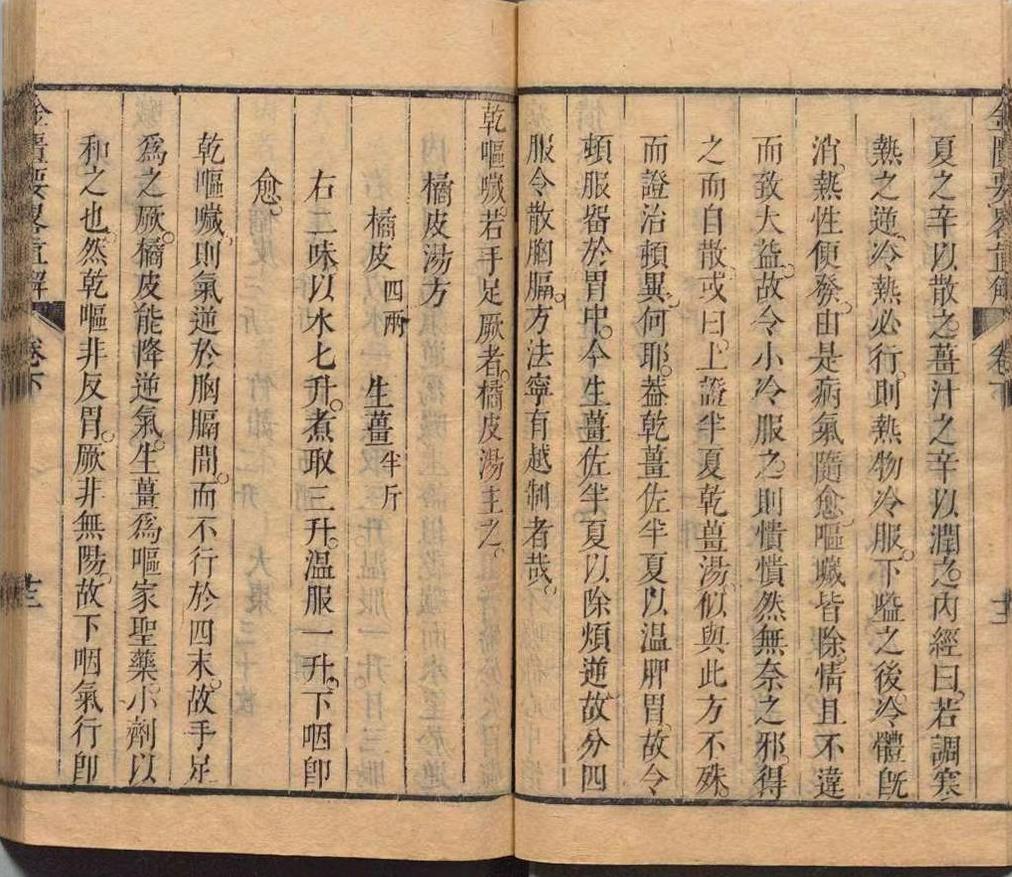 金匱要畧直解
卷下
夏之辛以散之薑汁之辛以潤之內經曰若調寒
熱之逆冷熱必行則熱物冷服下嗌之後冷體旣
消熱性便發由是病氣隨愈嘔噦皆除情且不違
而致大益故令小冷服之則憒憒然無奈之邪得
之而自散或曰上證半夏乾薑湯似與此方不殊
而證治頓異何耶葢乾薑佐半夏以温脾胃故令
頓服畱於胃中今生薑佐半夏以除煩逆故分四
服令散胸膈方法寧有越制者哉
乾嘔噦若手足厥者橘皮湯主之
橘皮湯方
橘皮四兩 生薑半斤
右二味以水七升煮取三升温服一升下咽卽
愈
乾嘔噦則氣逆於胸膈間而不行於四末故手足
爲之厥橘皮能降逆氣生薑爲嘔家聖藥小劑以
和之也然乾嘔非反胃厥非無陽故下咽氣行卽
金匱要畧直解
卷下